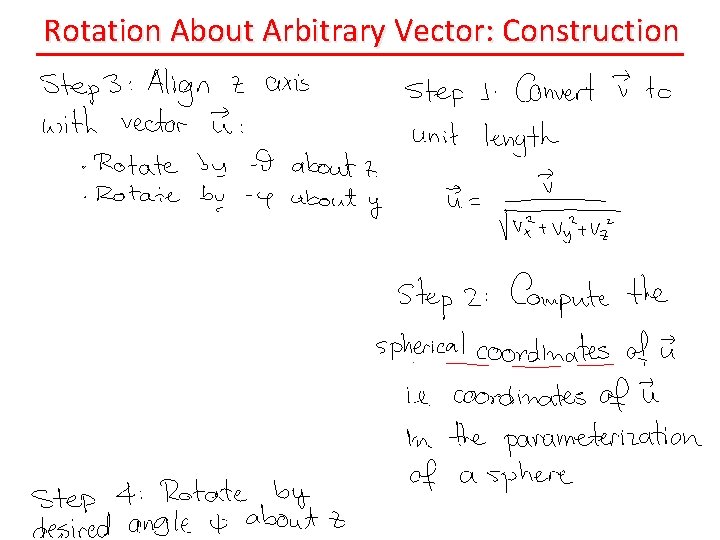 Rotation About Arbitrary Vector: Construction
Step 3: Align z axis
with vector u⃗:
· Rotate by -θ about z
· Rotate by -φ about y
Step 1. Convert v⃗ to
unit length
u⃗ = v⃗ / √(Vx² + Vy² + Vz²)
Step 2: Compute the
spherical coordinates of u⃗
i.e coordinates of u⃗
in the parameterization
of a sphere
Step 4: Rotate by
desired angle ψ about z